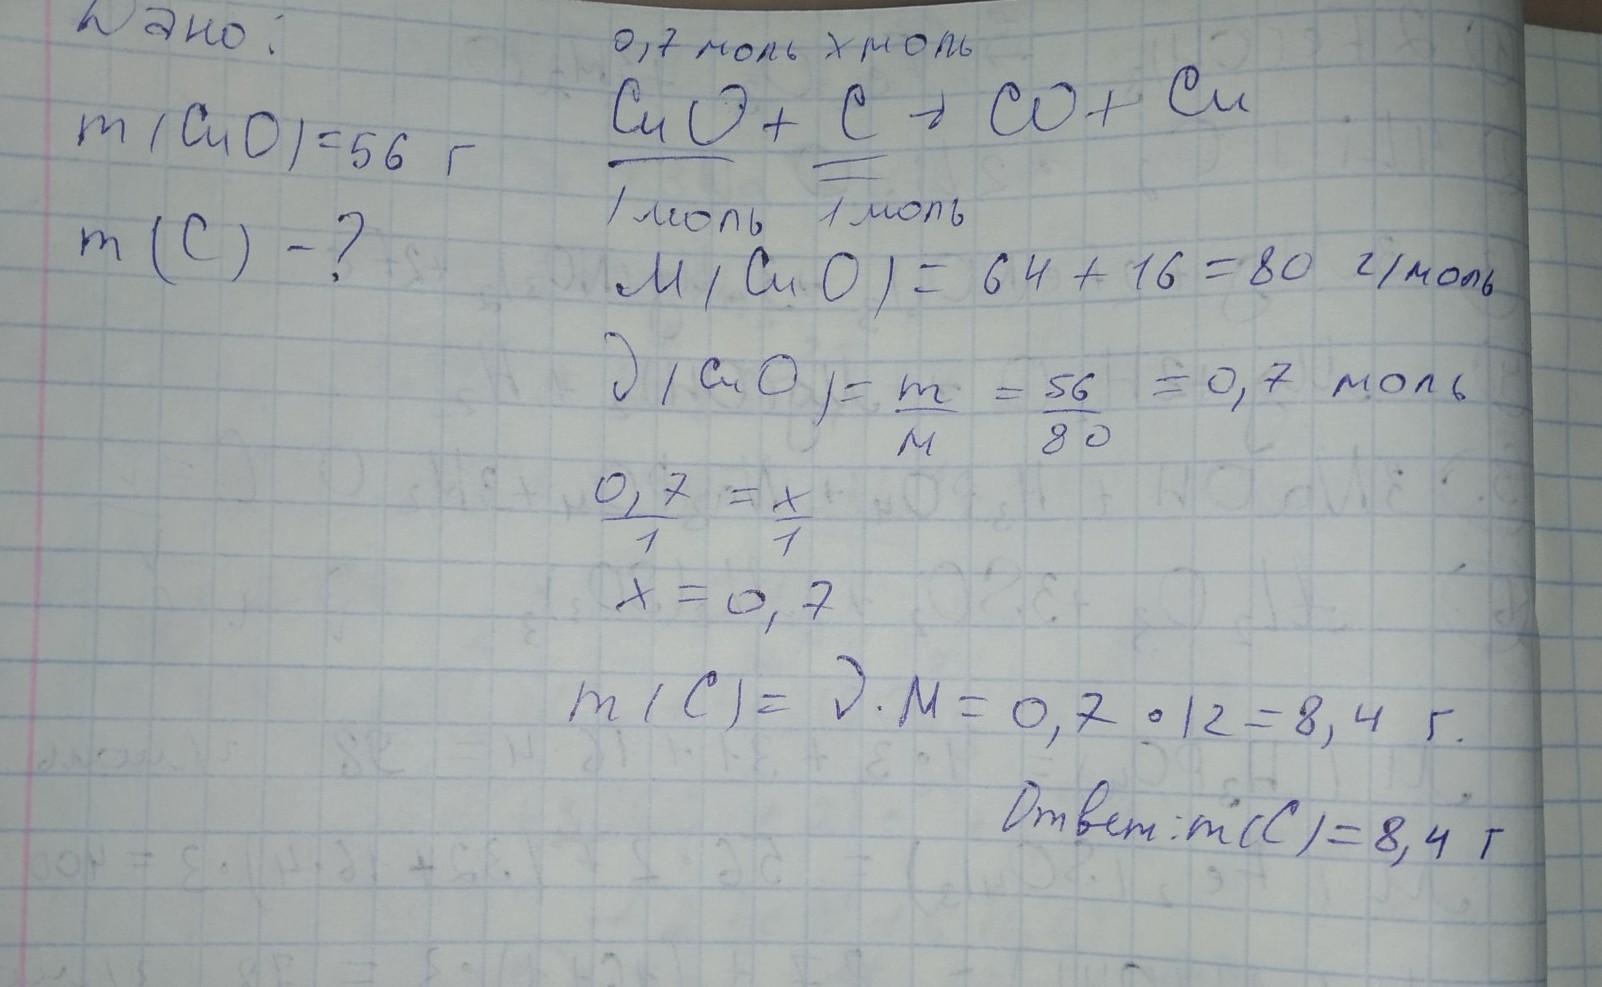 Дано:
m(CuO)=56 г
m(C) - ?
0,7 моль x моль
CuO + C → CO + Cu
1 моль 1 моль
M(CuO) = 64 + 16 = 80 г/моль
ν(CuO) = m/M = 56/80 = 0,7 моль
0,7/1 = x/1
x = 0,7
m(C) = ν · M = 0,7 · 12 = 8,4 г.
Ответ: m(C) = 8,4 г